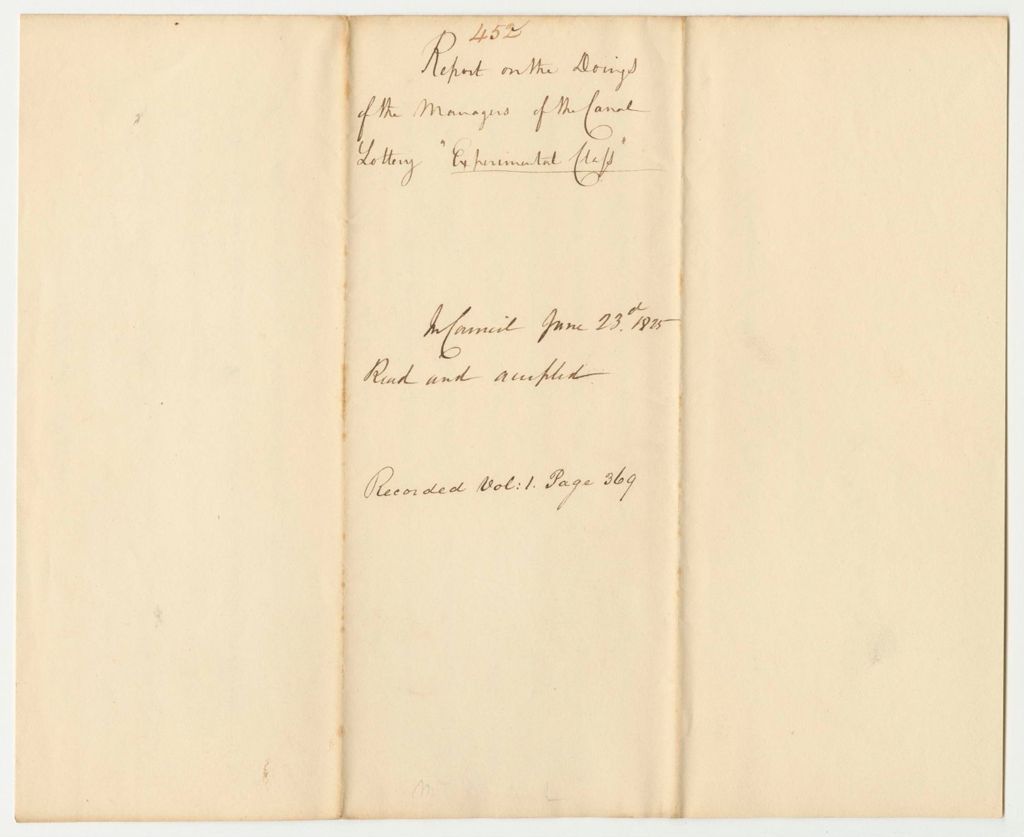 452
Report on the Doings
of the Managers of the Canal
Lottery "Experimental Class"
In Council June 23.d 1825
Read and accepted
Recorded Vol: 1. Page 369